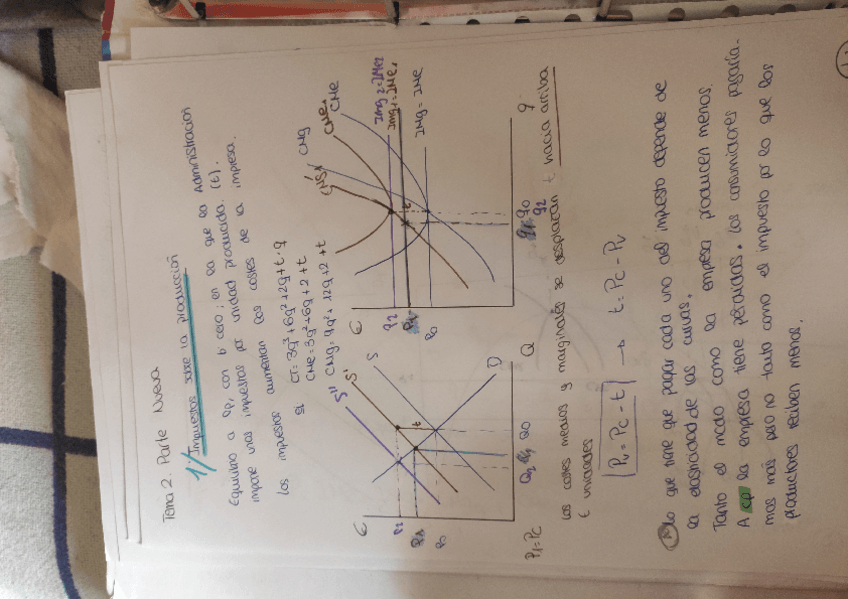 Tema 2. Parte Nueva
1/ Impuestos sobre la producción
Equilibrio a cp, con b cero; en la que la Administración
impone unos impuestos por unidad producida. (t).
Los impuestos aumentan los costes de la impresa.
Si CT = 3q³ + 6q² + 2q + t · q
CMe = 3q² + 6q + 2 + t
CMg = 9q² + 12q + 2 + t
€
P2
P1
P0
S''
S'
S
t
D
Q2 Q1 Q0
Q
P1 = Pc
€
P2
P1
P0
CMg'
CMg
CMe1
CMe
IMg2 = IMe2
IMg1 = IMe1
IMg = IMe
t
q1 q0
q2
q
Los costes medios y marginales se desplazan t hacia arriba
t unidades
Pv = Pc - t → t = Pc - Pv
Lo que tiene que pagar cada uno del impuesto depende de
la elasticidad de las curvas.
Tanto el modo como la empresa producen menos.
A cp la empresa tiene pérdidas. Los consumidores pagaría-
mos más pero no tanto como el impuesto por lo que los
productores reciben menos.